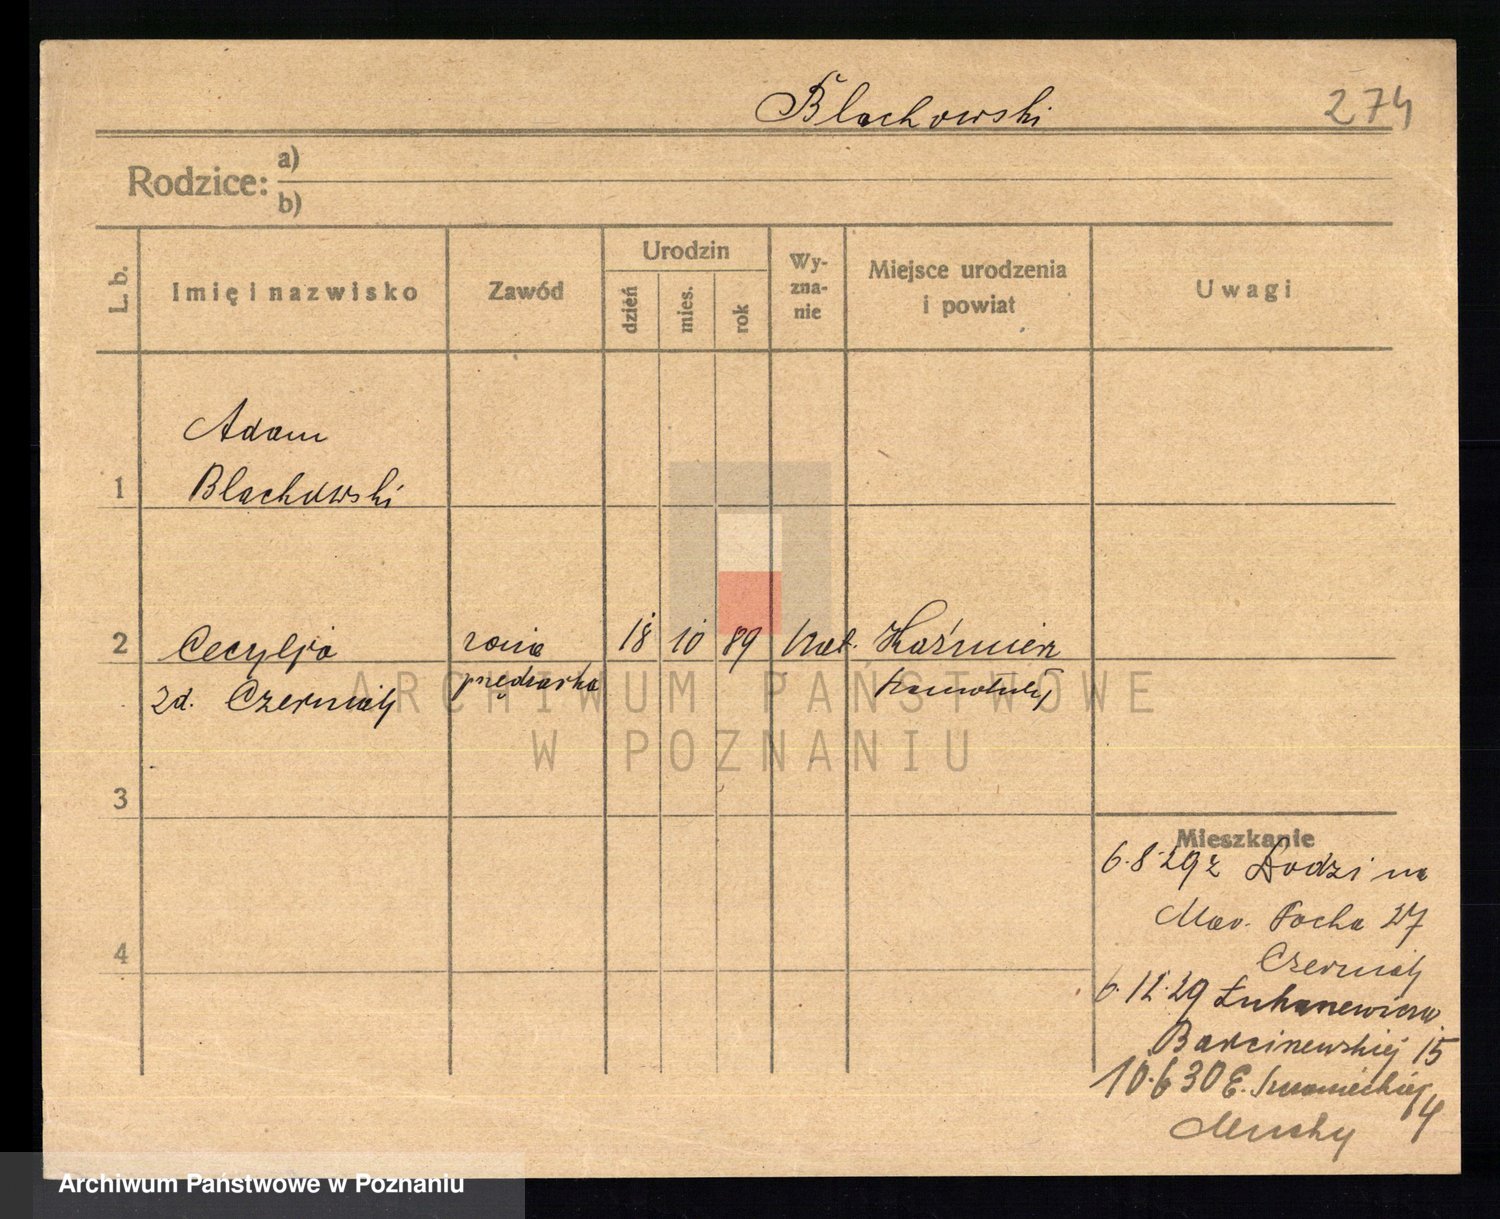 Blachowski 274
Rodzice: a)
b)
L. b. Imię i nazwisko Zawód Urodzin dzień mies. rok Wy-zna-nie Miejsce urodzenia i powiat Uwagi
Adam
1 Blachowski
2 Cecylja żona 18 10 89 kat. Kaźmierz
zd. Czerniak
ARCHIWUM PAŃSTWOWE
W POZNANIU
3
Mieszkanie
6.8.29 z Łodzi na
Mar. Focha 27
4
Czerniak
6.12.29
15
10.6.30 E. 4
Muchy
Archiwum Państwowe w Poznaniu